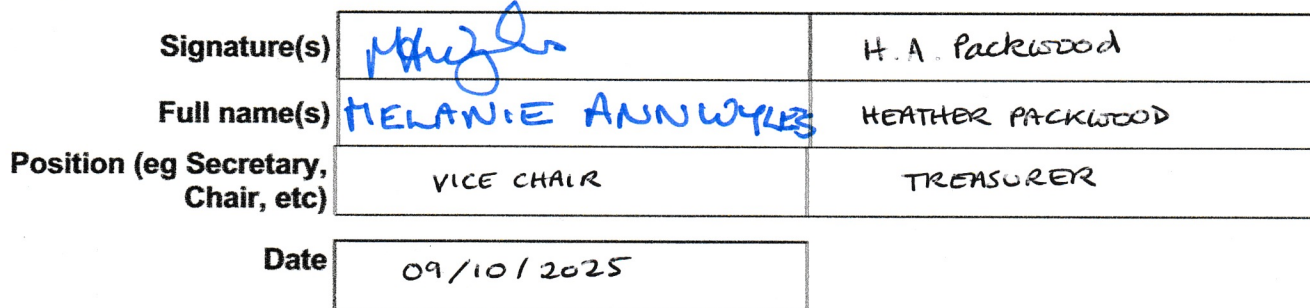 Signature(s) H.A. Packwood
Full name(s) MELANIE ANN WYLES HEATHER PACKWOOD
Position (eg Secretary, Chair, etc) VICE CHAIR TREASURER
Date 09/10/2025